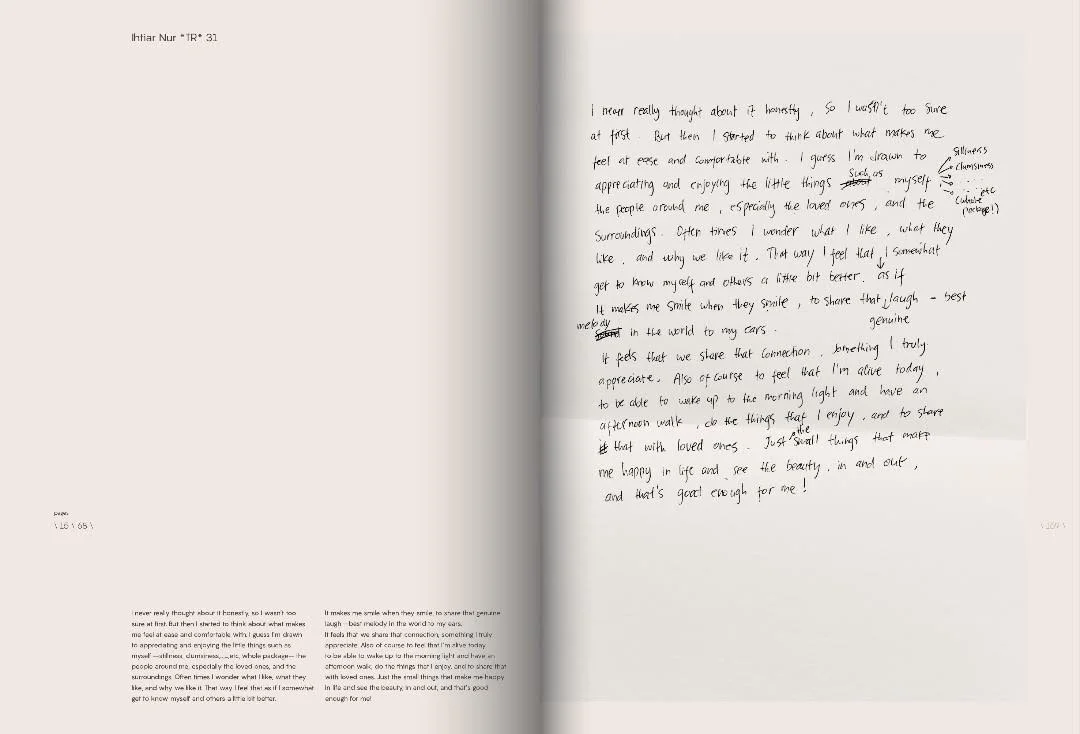 Ihtiar Nur *TR* 31
pages
\ 16 \ 68 \
I never really thought about it honestly, so I wasn't too
sure at first. But then I started to think about what makes
me feel at ease and comfortable with. I guess I'm drawn
to appreciating and enjoying the little things such as
myself —silliness, clumsiness,...,etc, whole package— the
people around me, especially the loved ones, and the
surroundings. Often times I wonder what I like, what they
like, and why we like it. That way I feel that as if I somewhat
get to know myself and others a little bit better.
It makes me smile when they smile, to share that genuine
laugh —best melody in the world to my ears.
It feels that we share that connection, something I truly
appreciate. Also of course to feel that I'm alive today,
to be able to wake up to the morning light and have an
afternoon walk, do the things that I enjoy, and to share that
with loved ones. Just the small things that make me happy
in life and see the beauty, in and out, and that's good
enough for me!
I never really thought about it honestly, so I wasn't too sure
at first. But then I started to think about what makes me
feel at ease and comfortable with. I guess I'm drawn to
silliness
clumsiness
. . . .
. . . etc
(whole
package!)
appreciating and enjoying the little things such as myself
the people around me, especially the loved ones, and the
surroundings. Often times I wonder what I like, what they
like, and why we like it. That way I feel that I somewhat
as if
get to know myself and others a little bit better.
It makes me smile when they smile, to share that laugh - best
genuine
melody in the world to my ears.
It feels that we share that connection, something I truly
appreciate. Also of course to feel that I'm alive today,
to be able to wake up to the morning light and have an
afternoon walk, do the things that I enjoy, and to share
that with loved ones. Just the small things that make
me happy in life and see the beauty, in and out,
and that's good enough for me!
\ 169 \